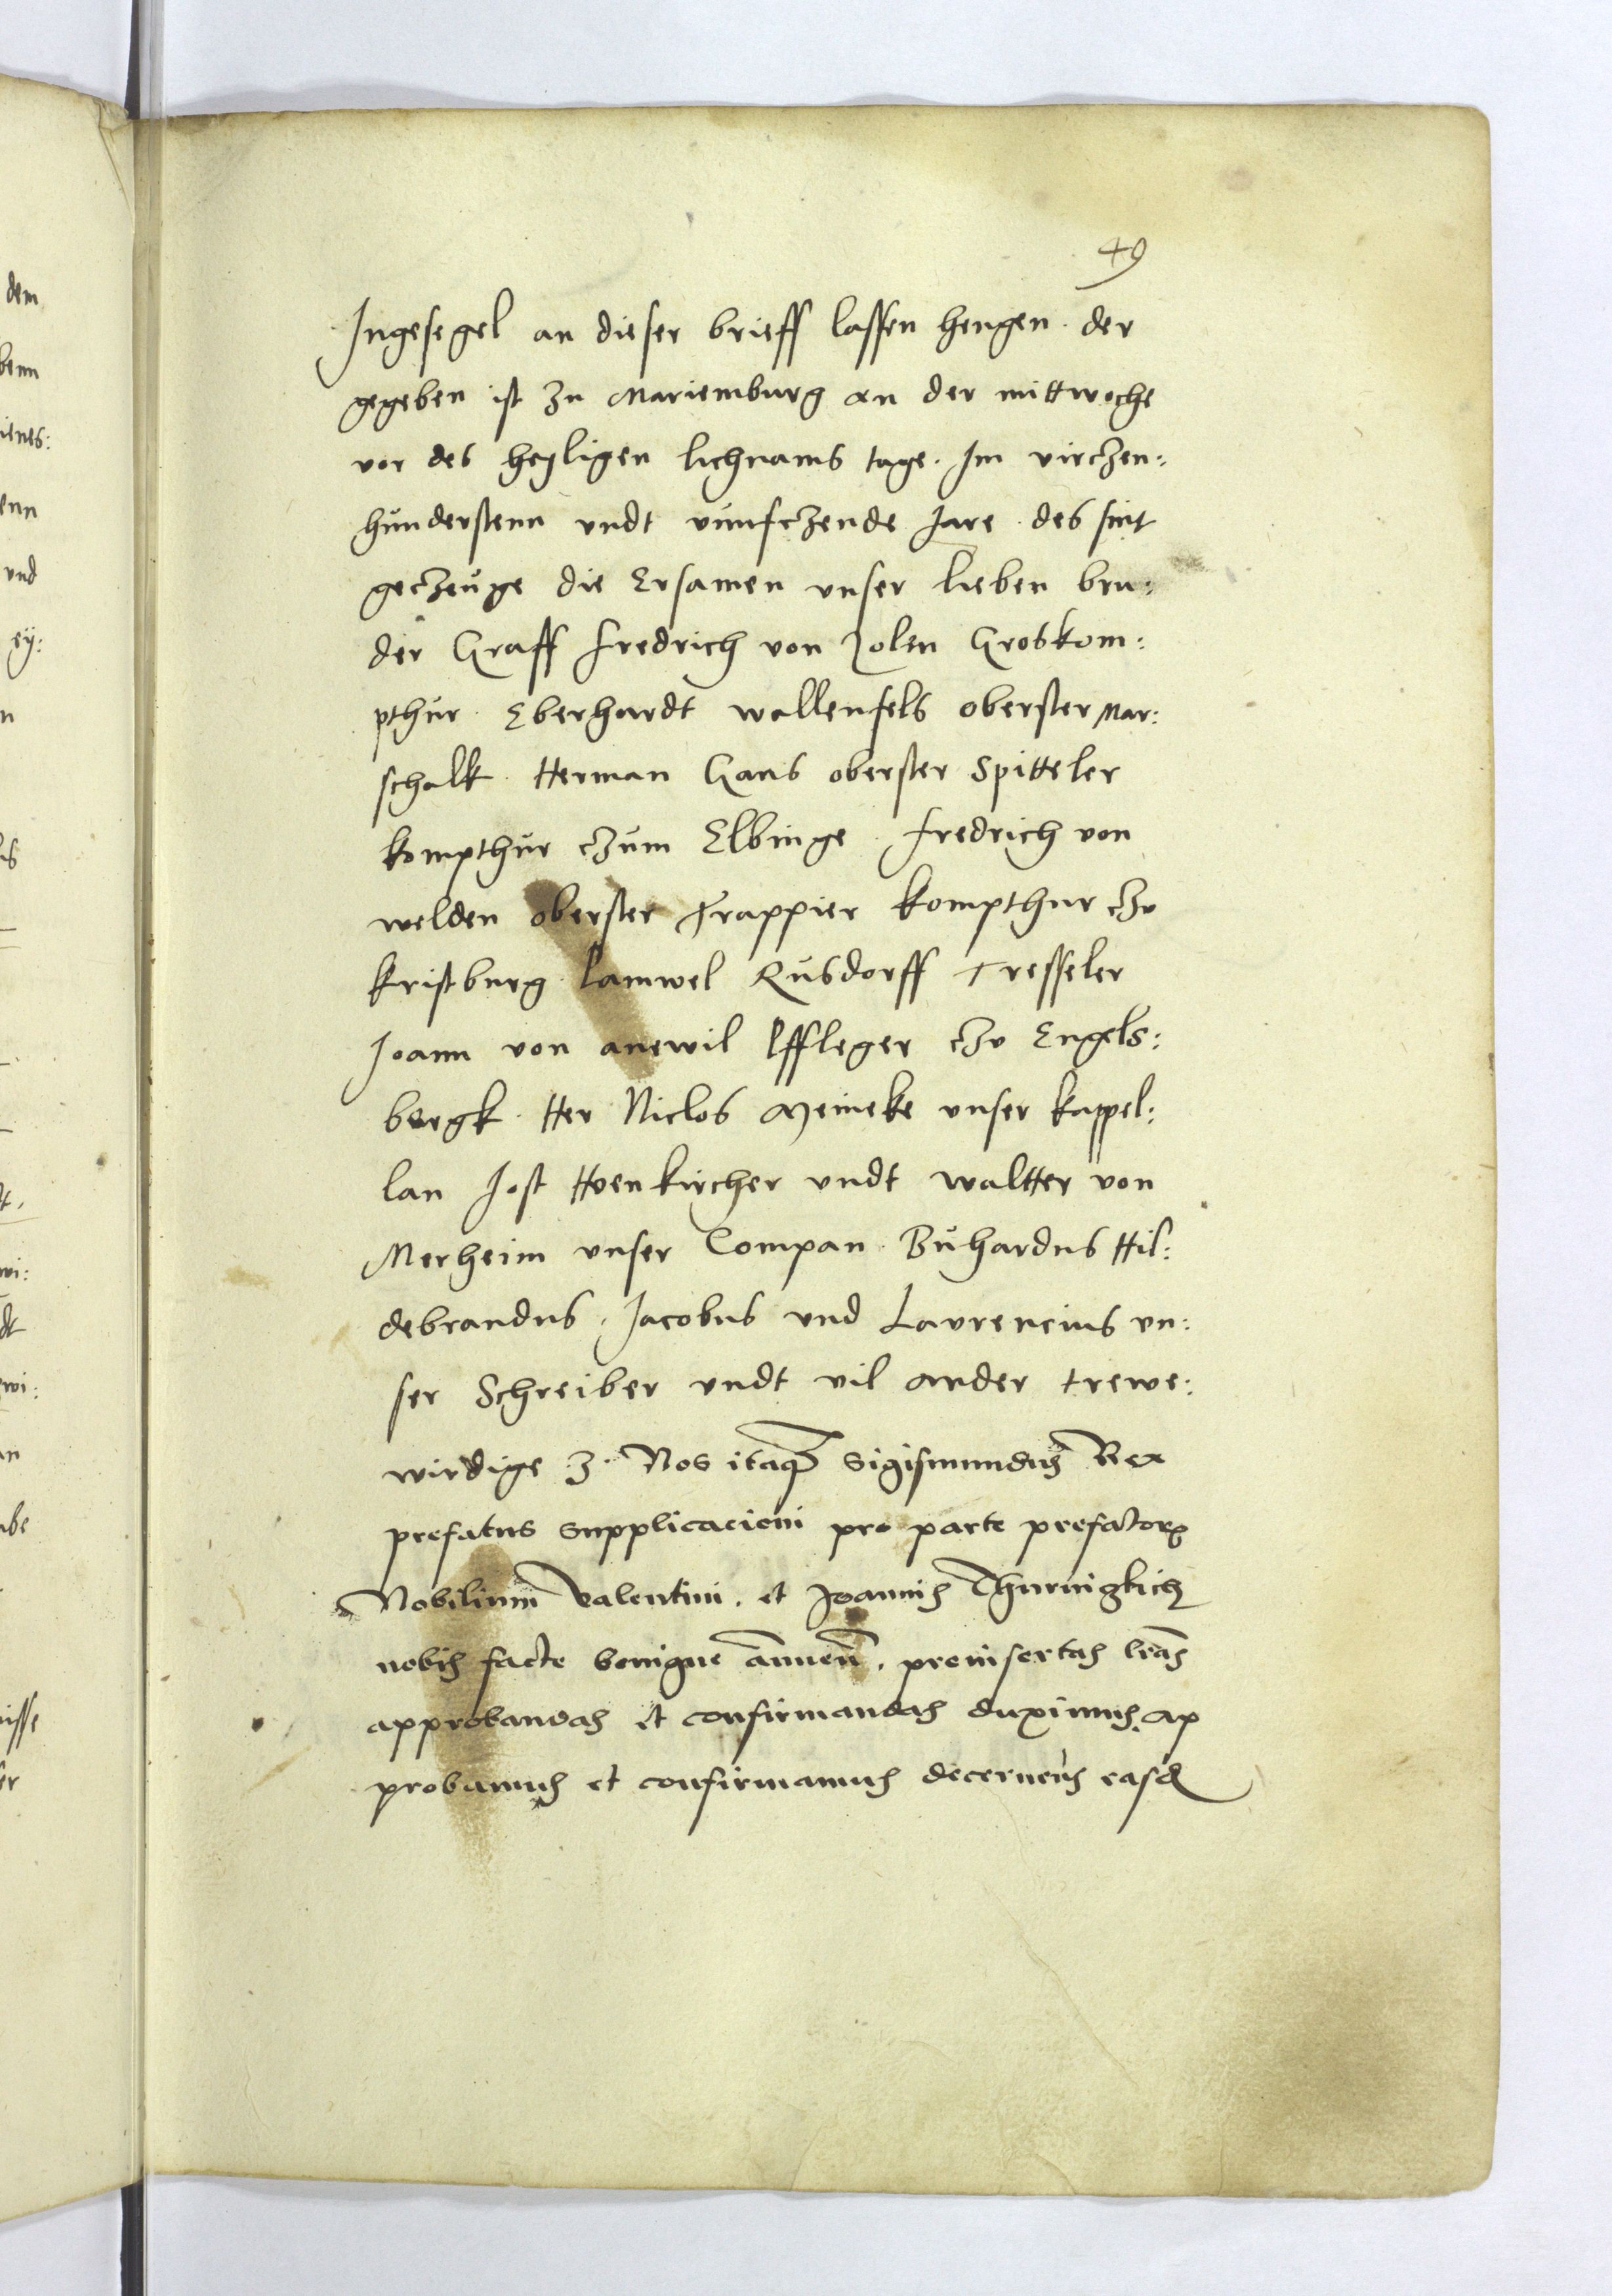 49
Ingesegel an dieser brieff lassen hengen. der
gegeben ist zu Mariemburg an der mittwoche
vor des heyligen lichnams tage. Im virczen:
hunderstenn vndt vumfczende Jare. des sint
geczeuge die Ersamen vnser lieben bru:
der Graff Fredrich von Zolen Groskom:
pthur. Eberhardt wallenfels oberster Mar:
schalk. Herman Gans oberster Spitteler
kompthur czum Elbinge. Fredrich von
welden oberster Trappier kompthur czu
kristburg. lamwel Rusdorff Tresseler
Joann von anewil Pffleger czu Engels:
bergk. Her Niclos Meineke vnser kappel:
lan Jost Hoenkircher vndt waltter von
Merheim vnser Compan. Buhardus Hil:
debrandus. Jacobus vnd Laurencius vn:
ser Schreiber vndt vil ander trewe:
wirdige 3. Nos itaq Sigismundus Rex
prefatus supplicacioni pro parte prefatorꝝ
Nobilium Valentini. et Joannis Thurnigkich
nobis facte benigne annuen. preinsertas lras
approbandas et confirmandas duximus. ap
probamus et confirmamus decernens easd
dem
benn
ienes:
enn
vnd
ey:
n
us
t.
wi:
dt
ewi:
an
abe
nisse
er